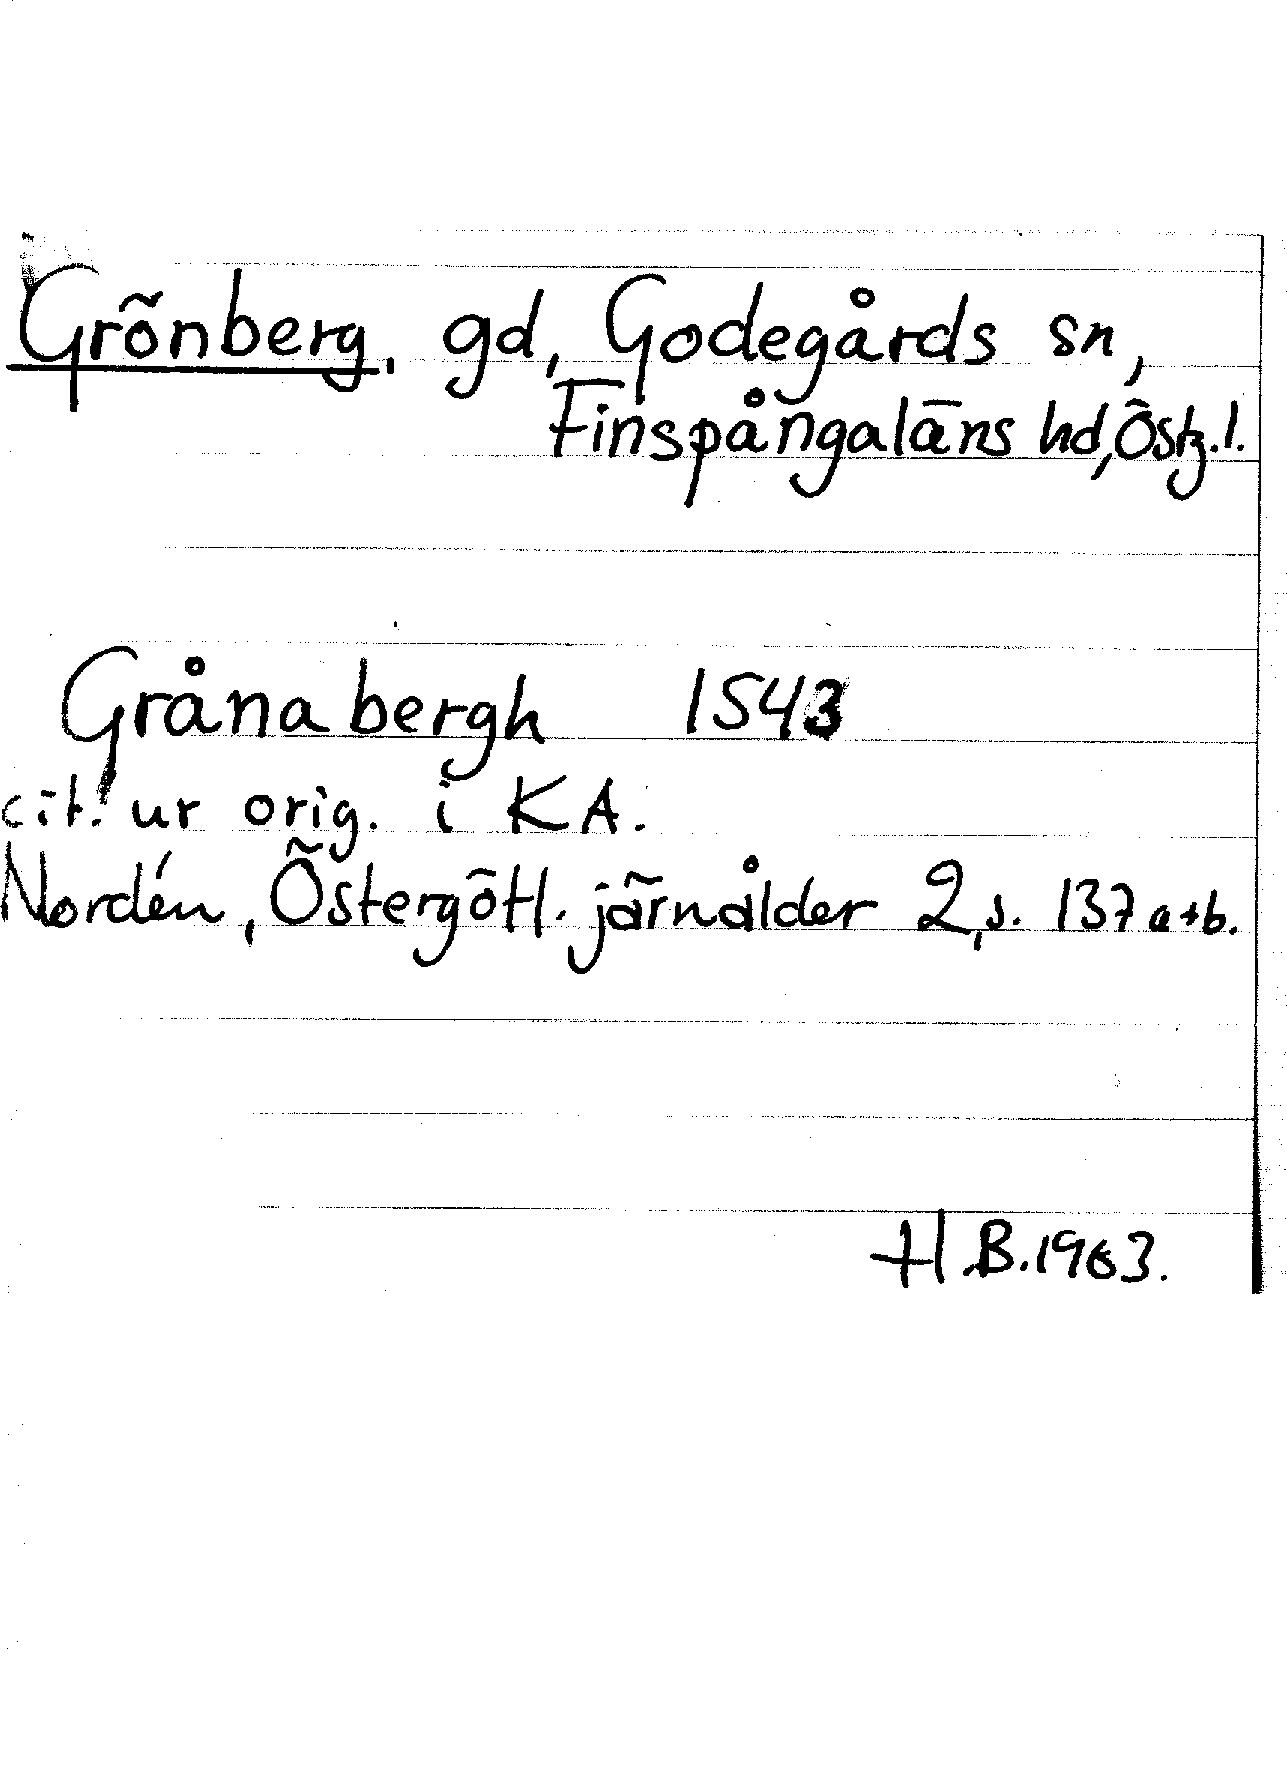 Grönberg, gd, Godegårds sn,
Finspångaläns hd, Östg.l.
Grånabergh 1543
cit. ur orig. i KA.
Nordén, Östergötl. järnålder 2, s. 137 a+b.
H.B. 1963.